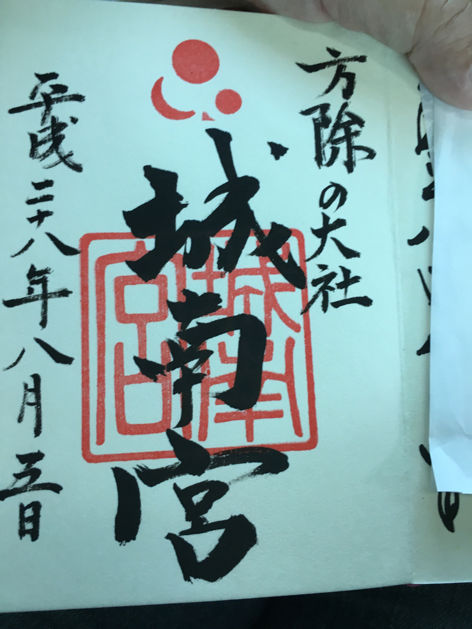 方除の大社
城南宮
城南宮
平成二十八年八月五日